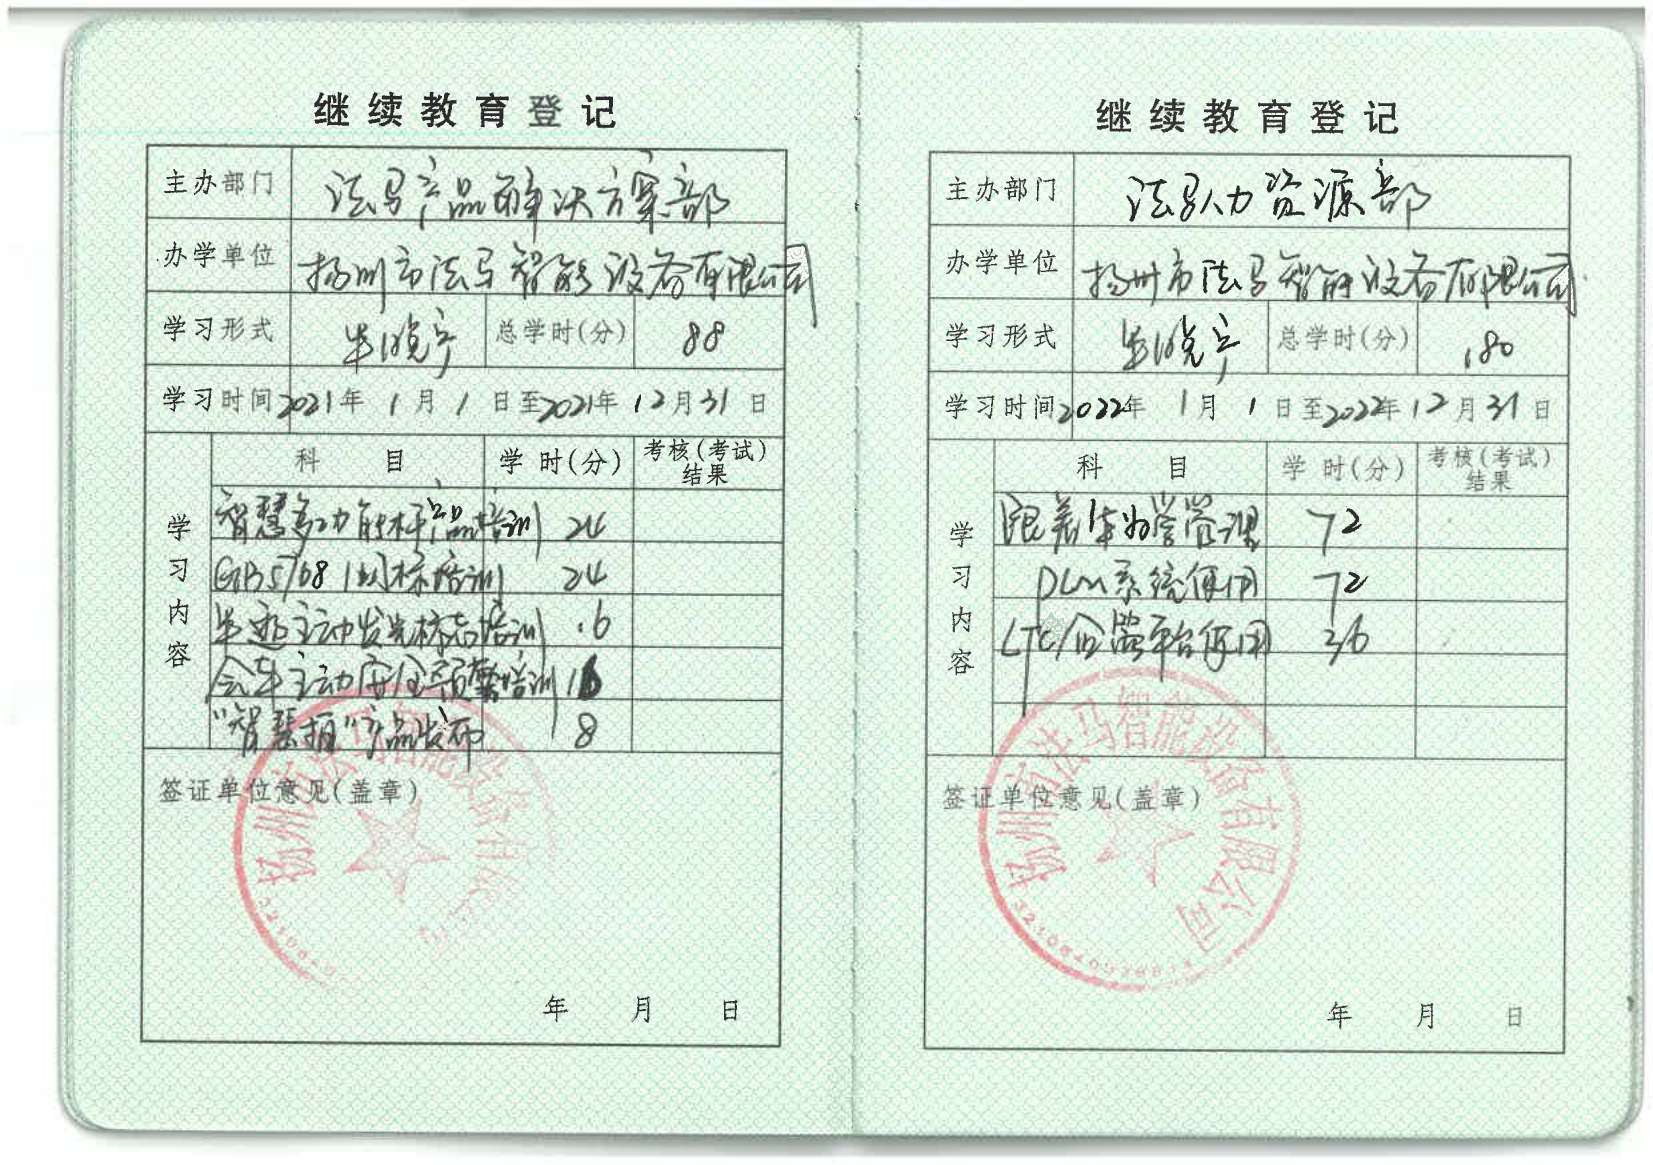 继续教育登记
主办部门 法马产品解决方案部
办学单位 扬州市法马智能设备有限公司
学习形式 总学时(分) 88
学习时间 2021年 1月 1日至2021年 12月31日
学习内容
科 目 学 时(分) 考核(考试)结果
智慧多功能杆产品培训 24
GB5768 国标培训 24
主动发光标志培训 16
会车主动安全预警培训 16
"智慧 "产品发布 8
签证单位意见(盖章)
扬州市法马智能设备有限公司
年 月 日
继续教育登记
主办部门 法马人力资源部
办学单位 扬州市法马智能设备有限公司
学习形式 总学时(分) 180
学习时间 2022年 1月 1日至2022年 12月31日
学习内容
科 目 学 时(分) 考核(考试)结果
跟着华为学管理 72
系统使用 72
LTC/ 平台使用 36
签证单位意见(盖章)
扬州市法马智能设备有限公司
年 月 日